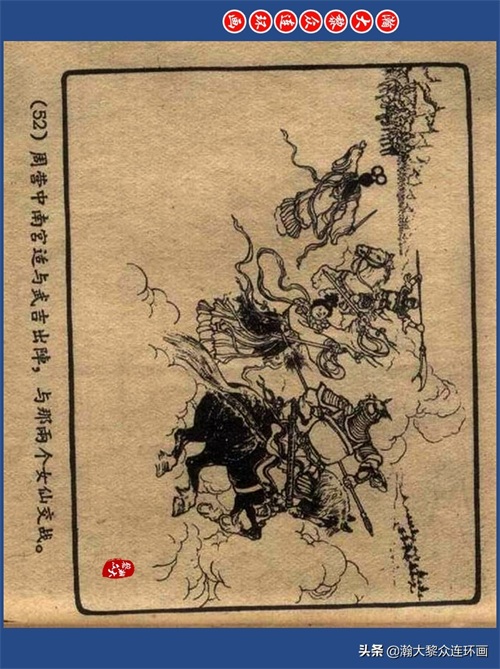 瀚大黎众连环画
(52) 周营中南宫适与武吉出阵，与那兩个女仙交战。
头条 @瀚大黎众连环画